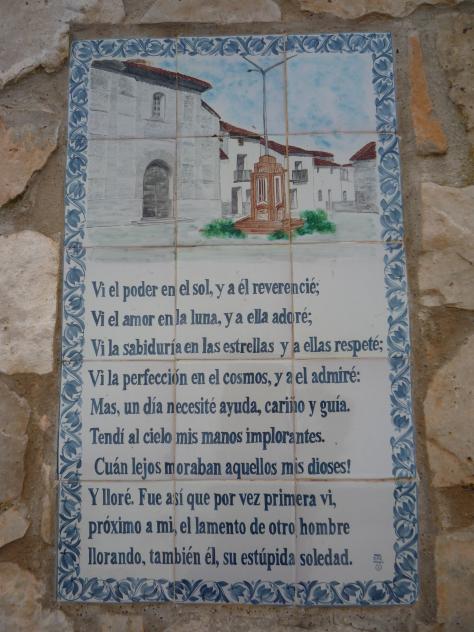 Vi el poder en el sol, y a él reverencié;
Vi el amor en la luna, y a ella adoré;
Vi la sabiduría en las estrellas y a ellas respeté;
Vi la perfección en el cosmos, y a el admiré:
Mas, un día necesité ayuda, cariño y guía.
Tendí al cielo mis manos implorantes.
Cuán lejos moraban aquellos mis dioses!
Y lloré. Fue así que por vez primera vi,
próximo a mi, el lamento de otro hombre
llorando, también él, su estúpida soledad.